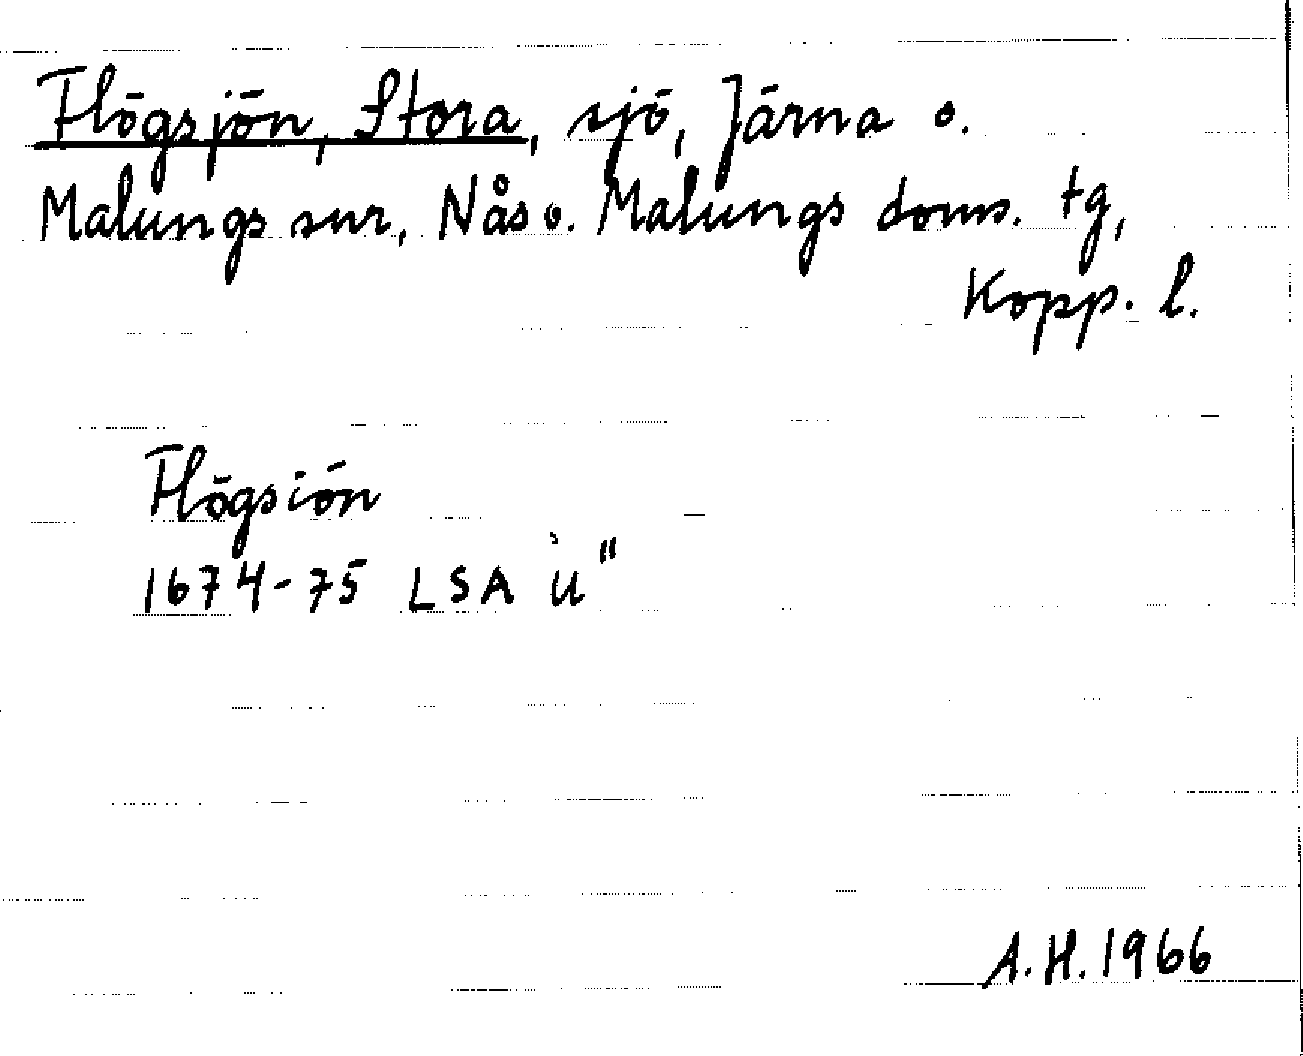 Flögsjön, Stora, sjö, Järna o.
Malungs snr, Nås o. Malungs doms. tg,
Kopp. l.
Flögsiön
1674-75 LSA u"
A.H.1966